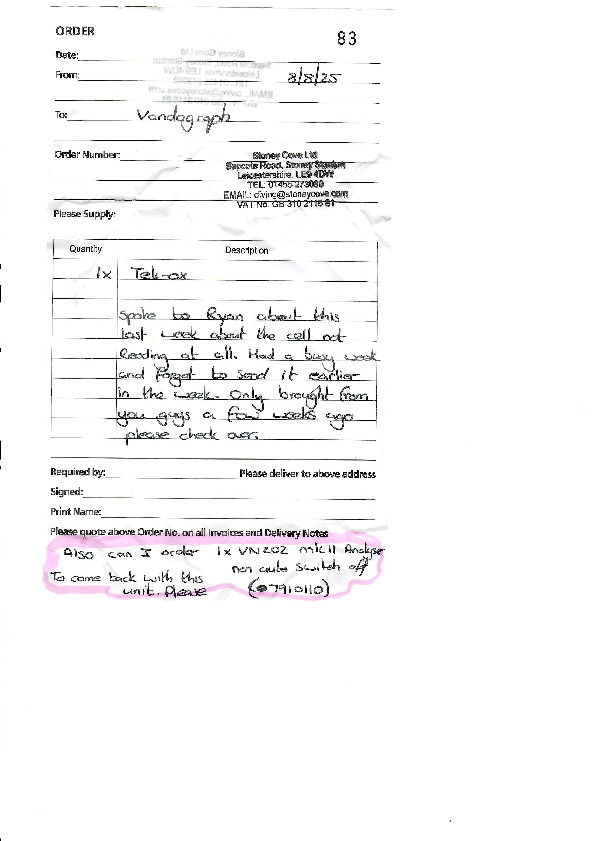 ORDER
83
Date:
From:
8/8/25
To: Vandagraph
Order Number:
Stoney Cove Ltd
Sapcote Road, Stoney Stanton
Leicestershire. LE9 4DW
TEL: 01455 273089
EMAIL: diving@stoneycove.com
VAT No. GB 310 2116 81
Please Supply:
Quantity Description
1x Tek-ox
Spoke to Ryan about this
last week about the cell not
Reading at all. Had a busy week
and forgot to send it earlier
in the week. Only brought from
you guys a few weeks ago
please check over.
Required by: Please deliver to above address
Signed:
Print Name:
Please quote above Order No. on all Invoices and Delivery Notes
Also can I order 1x VN202 mkII Analyser
non auto switch off
To come back with this
unit. Please (07910110)